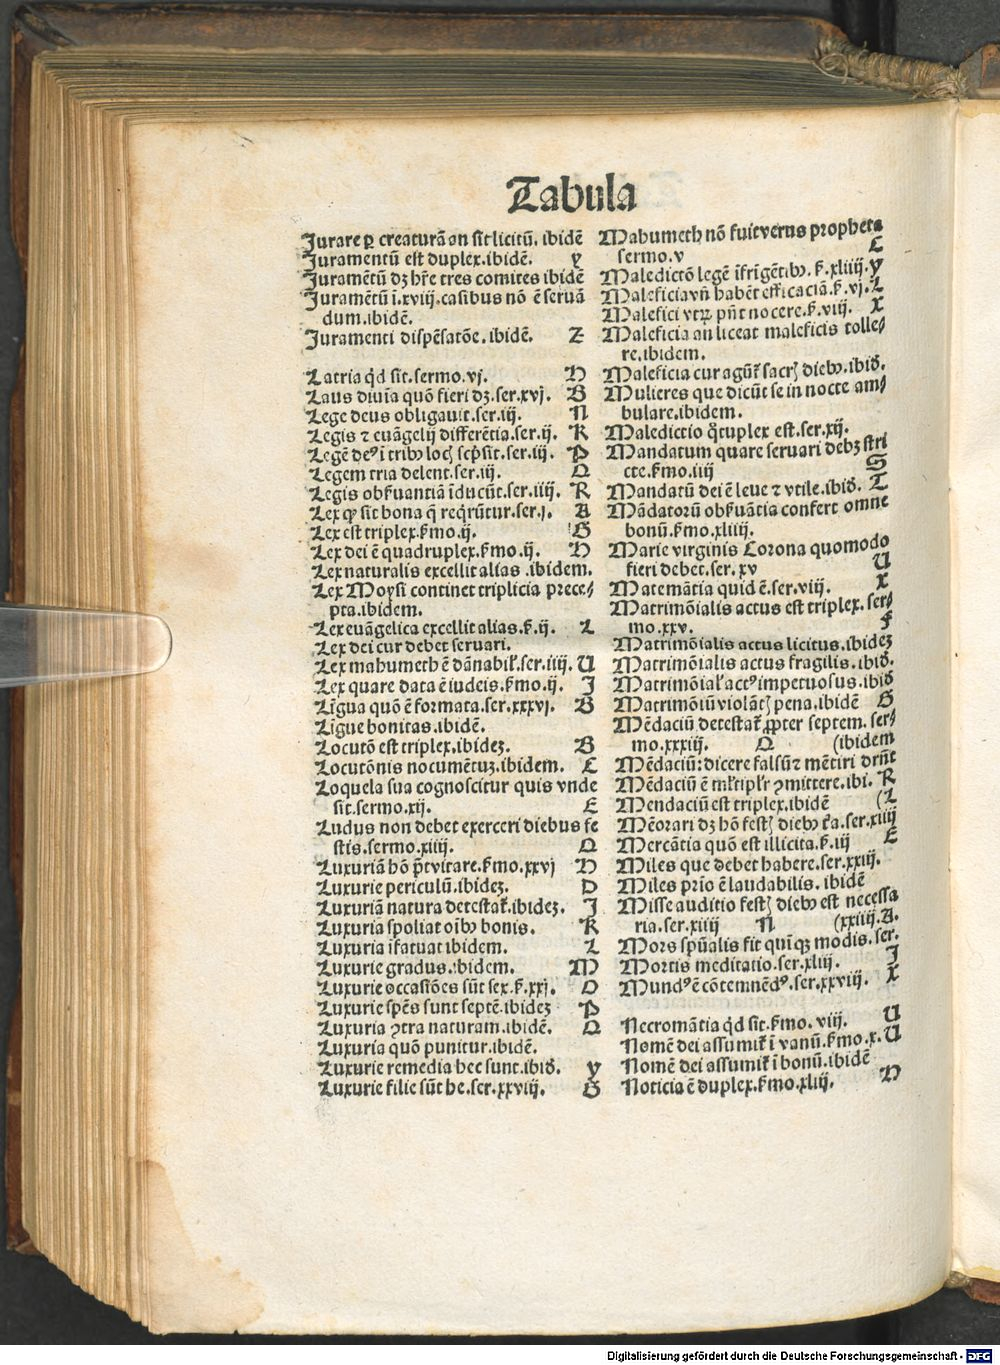 Tabula
Jurare ꝑ creaturā an sit licitū. ibidē
Juramentū est duplex.ibidē. y
Juramētū dꝫ hr̄e tres comites ibidē
Juramētū ī.xviij.casibus nō ē serua
dum.ibidē.
Juramenti dispēsatōe.ibidē. Z
Latria qd sit.sermo.vj. H
Laus diuīa quō fieri dꝫ.ser.xvj. B
Lege deus obligauit.ser.iij. N
Legis ⁊ euāgelij differētia.ser.ij. K
Legē deꝰ ī tribꝰ locꝭ scp̄sit.ser.iij. P
Legem tria delent.ser.iij. Q
Legis obẜuantiā īducūt.ser.iiij. R
Lex ꝙ sit bona q̄ reqrūtur.ser.j. A
Lex est triplex.ẜmo.ij. G
Lex dei ē quadruplex.ẜmo.ij. H
Lex naturalis excellit alias .ibidem.
Lex Moysi continet triplicia prece⸗
pta.ibidem.
Lex euāgelica excellit alias.ẜ.ij. L
Lex dei cur debet seruari.
Lex mahumeth ē dānabil'.ser.iiij. U
Lex quare data ē iudeis.ẜmo.ij. J
Līgua quō ē formata.ser.xxxvj. B
Līgue bonitas.ibidē.
Locutō est triplex.ibideꝫ. B
Locutōnis nocumētuꝫ.ibidem. C
Loquela sua cognoscitur quis vnde
sit.sermo.xij. E
Ludus non debet exerceri diebus fe
stis.sermo.xiiij. Q
Luxuriā hō p̄t vitare.ẜmo.xxvj H
Luxurie periculū.ibideꝫ. D
Luxuriā natura detestat̄.ibideꝫ. J
Luxuria spoliat oībꝰ bonis. K
Luxuria īfatuat ibidem. L
Luxurie gradus.ibidem. M
Luxurie occasiōes sūt sex.ẜ.xxj. O
Luxurie spēs sunt septē.ibideꝫ P
Luxuria ꝯtra naturam.ibidē. Q
Luxuria quō punitur.ibidē.
Luxurie remedia hec sunt.ibid. y
Luxurie filie sūt he.ser.xxviij. G
Mahumeth nō fuit verus propheta
sermo.v C
Maledictō legē īfrīgētibꝰ. ẜ.xliiij. y
Maleficia vn̄ habēt efficaciā.ẜ.vj. L
Malefici vtrꝝ pn̄t nocere.ẜ.viij. X
Maleficia an liceat maleficis tolle⸗
re.ibidem.
Maleficia cur agūt̄ sacrꝭ diebꝰ.ibid.
Mulieres que dicūt se in nocte am⸗
bulare.ibidem.
Maledictio q̄tuplex est.ser.xij.
Mandatum quare seruari debꝫ stri
cte.ẜmo.iiij S
Mandatū dei ē leue ⁊ vtile.ibid. T
Mādatorū obẜuātia confert omne
bonū.ẜmo.xliiij.
Marie virginis Corona quomodo
fieri debet.ser.xv U
Matemātia quid ē.ser.viij. X
Matrimōialis actus est triplex.ser⸗
mo.xxv. f
Matrimōialis actus licitus.ibideꝫ
Matrimōialis actus fragilis.ibid.
Matrimōial' actꝰ impetuosus.ibid
Matrimōiū violātꝭ pena.ibidē G
Mēdaciū detestat̄ ꝓpter septem.ser⸗
mo.xxxiij. Q (ibidem
Mēdaciū: dicere falsū ⁊ mētiri dr̄nt
Mēdaciū ē ml'tipl'r ꝯmittere.ibi. R
Mendaciū est triplex.ibidē (L
Mēorari dꝫ hō festꝭ diebꝰ t'a.ser.xiiij
Mercātia quō est illicita.ẜ.iij E
Miles que debet habere.ser.xxiij.
Miles prīo ē laudabilis.ibidē
Misse auditio festꝭ diebꝰ est necessa
ria.ser.xiiij N (xxiiij.A.
Mors spūalis fit quīqꝫ modis.ser.
Mortis meditatio.ser.xliij. J
Mundꝰ ē cōtemnēdꝰ.ser.xxviij. X
Necromātia qd sit.ẜmo.viij. U
Nomē dei assumit̄ ī vanū.ẜmo.x. U
Nomē dei assumit̄ ī bonū.ibidē
Noticia ē duplex.ẜmo.xlij. H
Digitalisierung gefördert durch die Deutsche Forschungsgemeinschaft - DFG